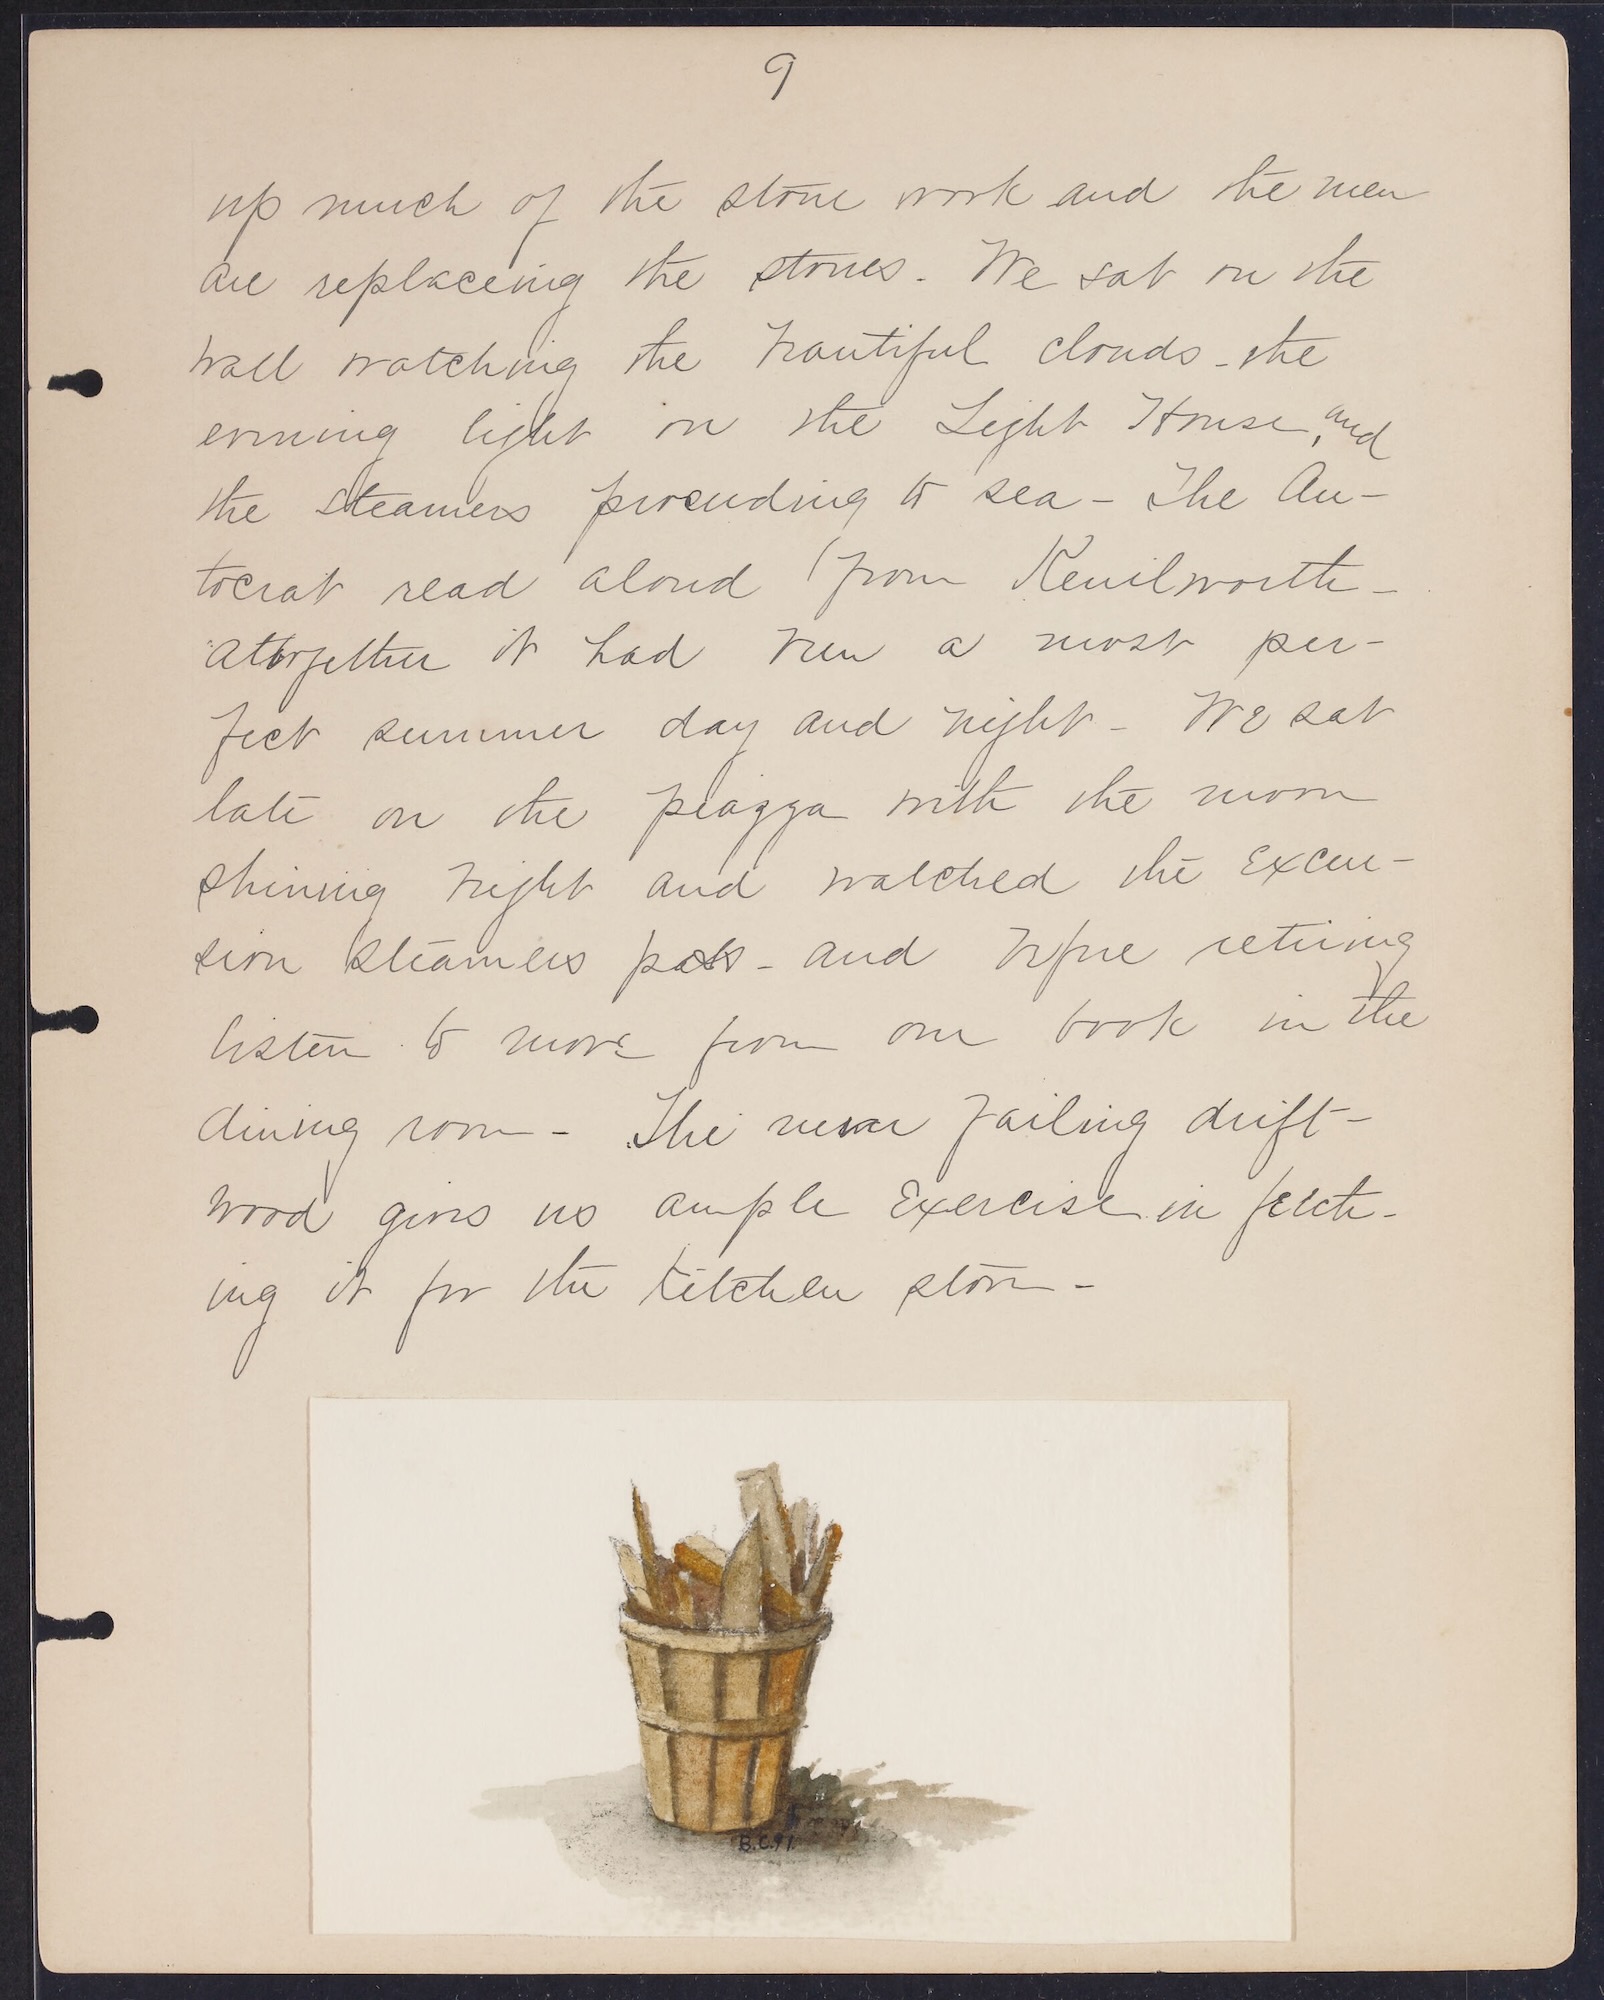 9
up much of the stone work and the men
are replaceing the stones. We sat on the
wall watching the beautiful clouds - the
evening light on the Light House, and
the steamers proceeding to sea - The Au-
tocrat read aloud from Kenilworth -
altogether it had been a most per-
fect summer day and night - We sat
late on the piazza with the moon
shining bright and watched the excur-
sion steamers pass - and before retiring
listen to more from our book in the
dining room - The never failing drift-
wood gives us ample exercise in fetch-
ing it for the kitchen stove -
B.C. 91.